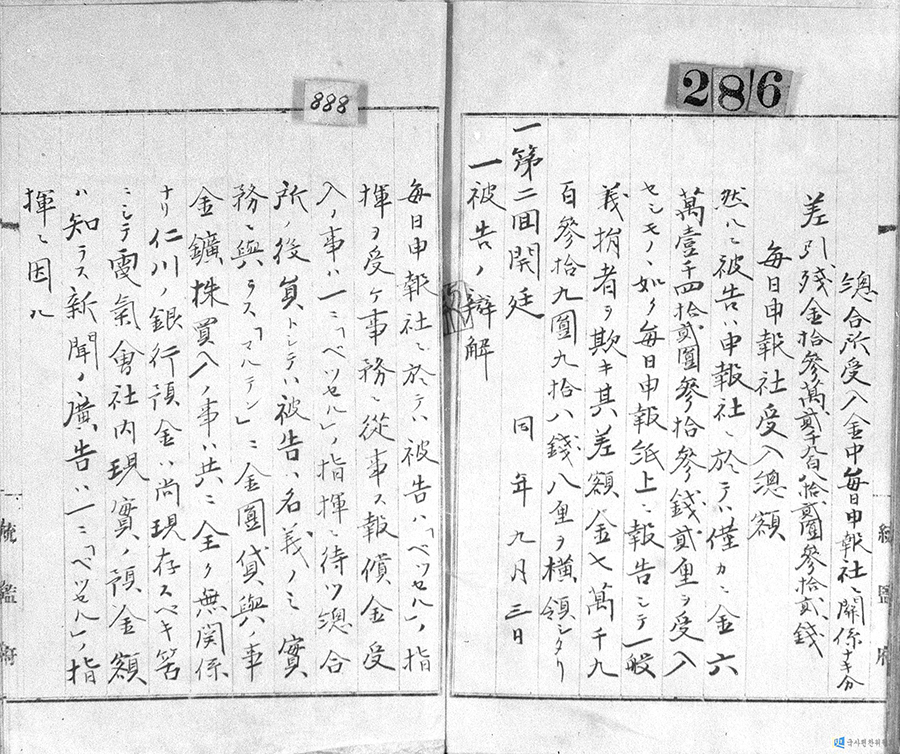 286
總合所受入金中毎日申報社ニ關係ナキ分
差引残金拾參萬貳千九百八拾貳圓參拾貳錢
毎日申報社受入總額
然ルニ被告ハ申報社ニ於テハ僅カニ金六
萬壹千四拾貳圓參拾參錢貳厘ヲ受入
セシモノヽ如ク毎日申報紙上ニ報告シテ一般
義捐者ヲ欺キ其差額金七萬千九
百參拾九圓九拾八錢八厘ヲ横領シタリ
一第二回開廷 同年九月三日
一被告ノ辯解
統監府
888
毎日申報社ニ於テハ被告ハ「ベツセル」ノ指
揮ヲ受ケ事務ニ從事ス報償金受
入ノ事ハ一ニ「ベツセル」ノ指揮ニ待ツ總合
所ノ役員トシテハ被告ハ名義ノミ實
務ニ與ラス「マルテン」ニ金圓貸與ノ事
金鑛株買入ノ事ハ共ニ全ク無関係
ナリ仁川ノ銀行預金ハ尚現存スベキ筈
ニシテ電氣會社内現實ノ預金額
ハ知ラス新聞ノ廣告ハ一ニ「ベツセル」ノ指
揮ニ因ル
統監府
국사편찬위원회